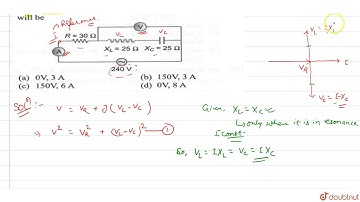 will be
Reference
R = 30 Ω
V
V_L
V_C
A
X_L = 25 Ω
X_C = 25 Ω
240 V
(a) 0V, 3 A
(b) 150V, 3 A
(c) 150V, 6 A
(d) 0V, 8 A
V = V_R + j(V_L - V_C)
⇒ V² = V_R² + (V_L - V_C)² — ①
V_R
I
Given, X_L = X_C
↳ only when it is in resonance.
I const.
So, V_L = I X_L = V_C = I X_C
doubtnut